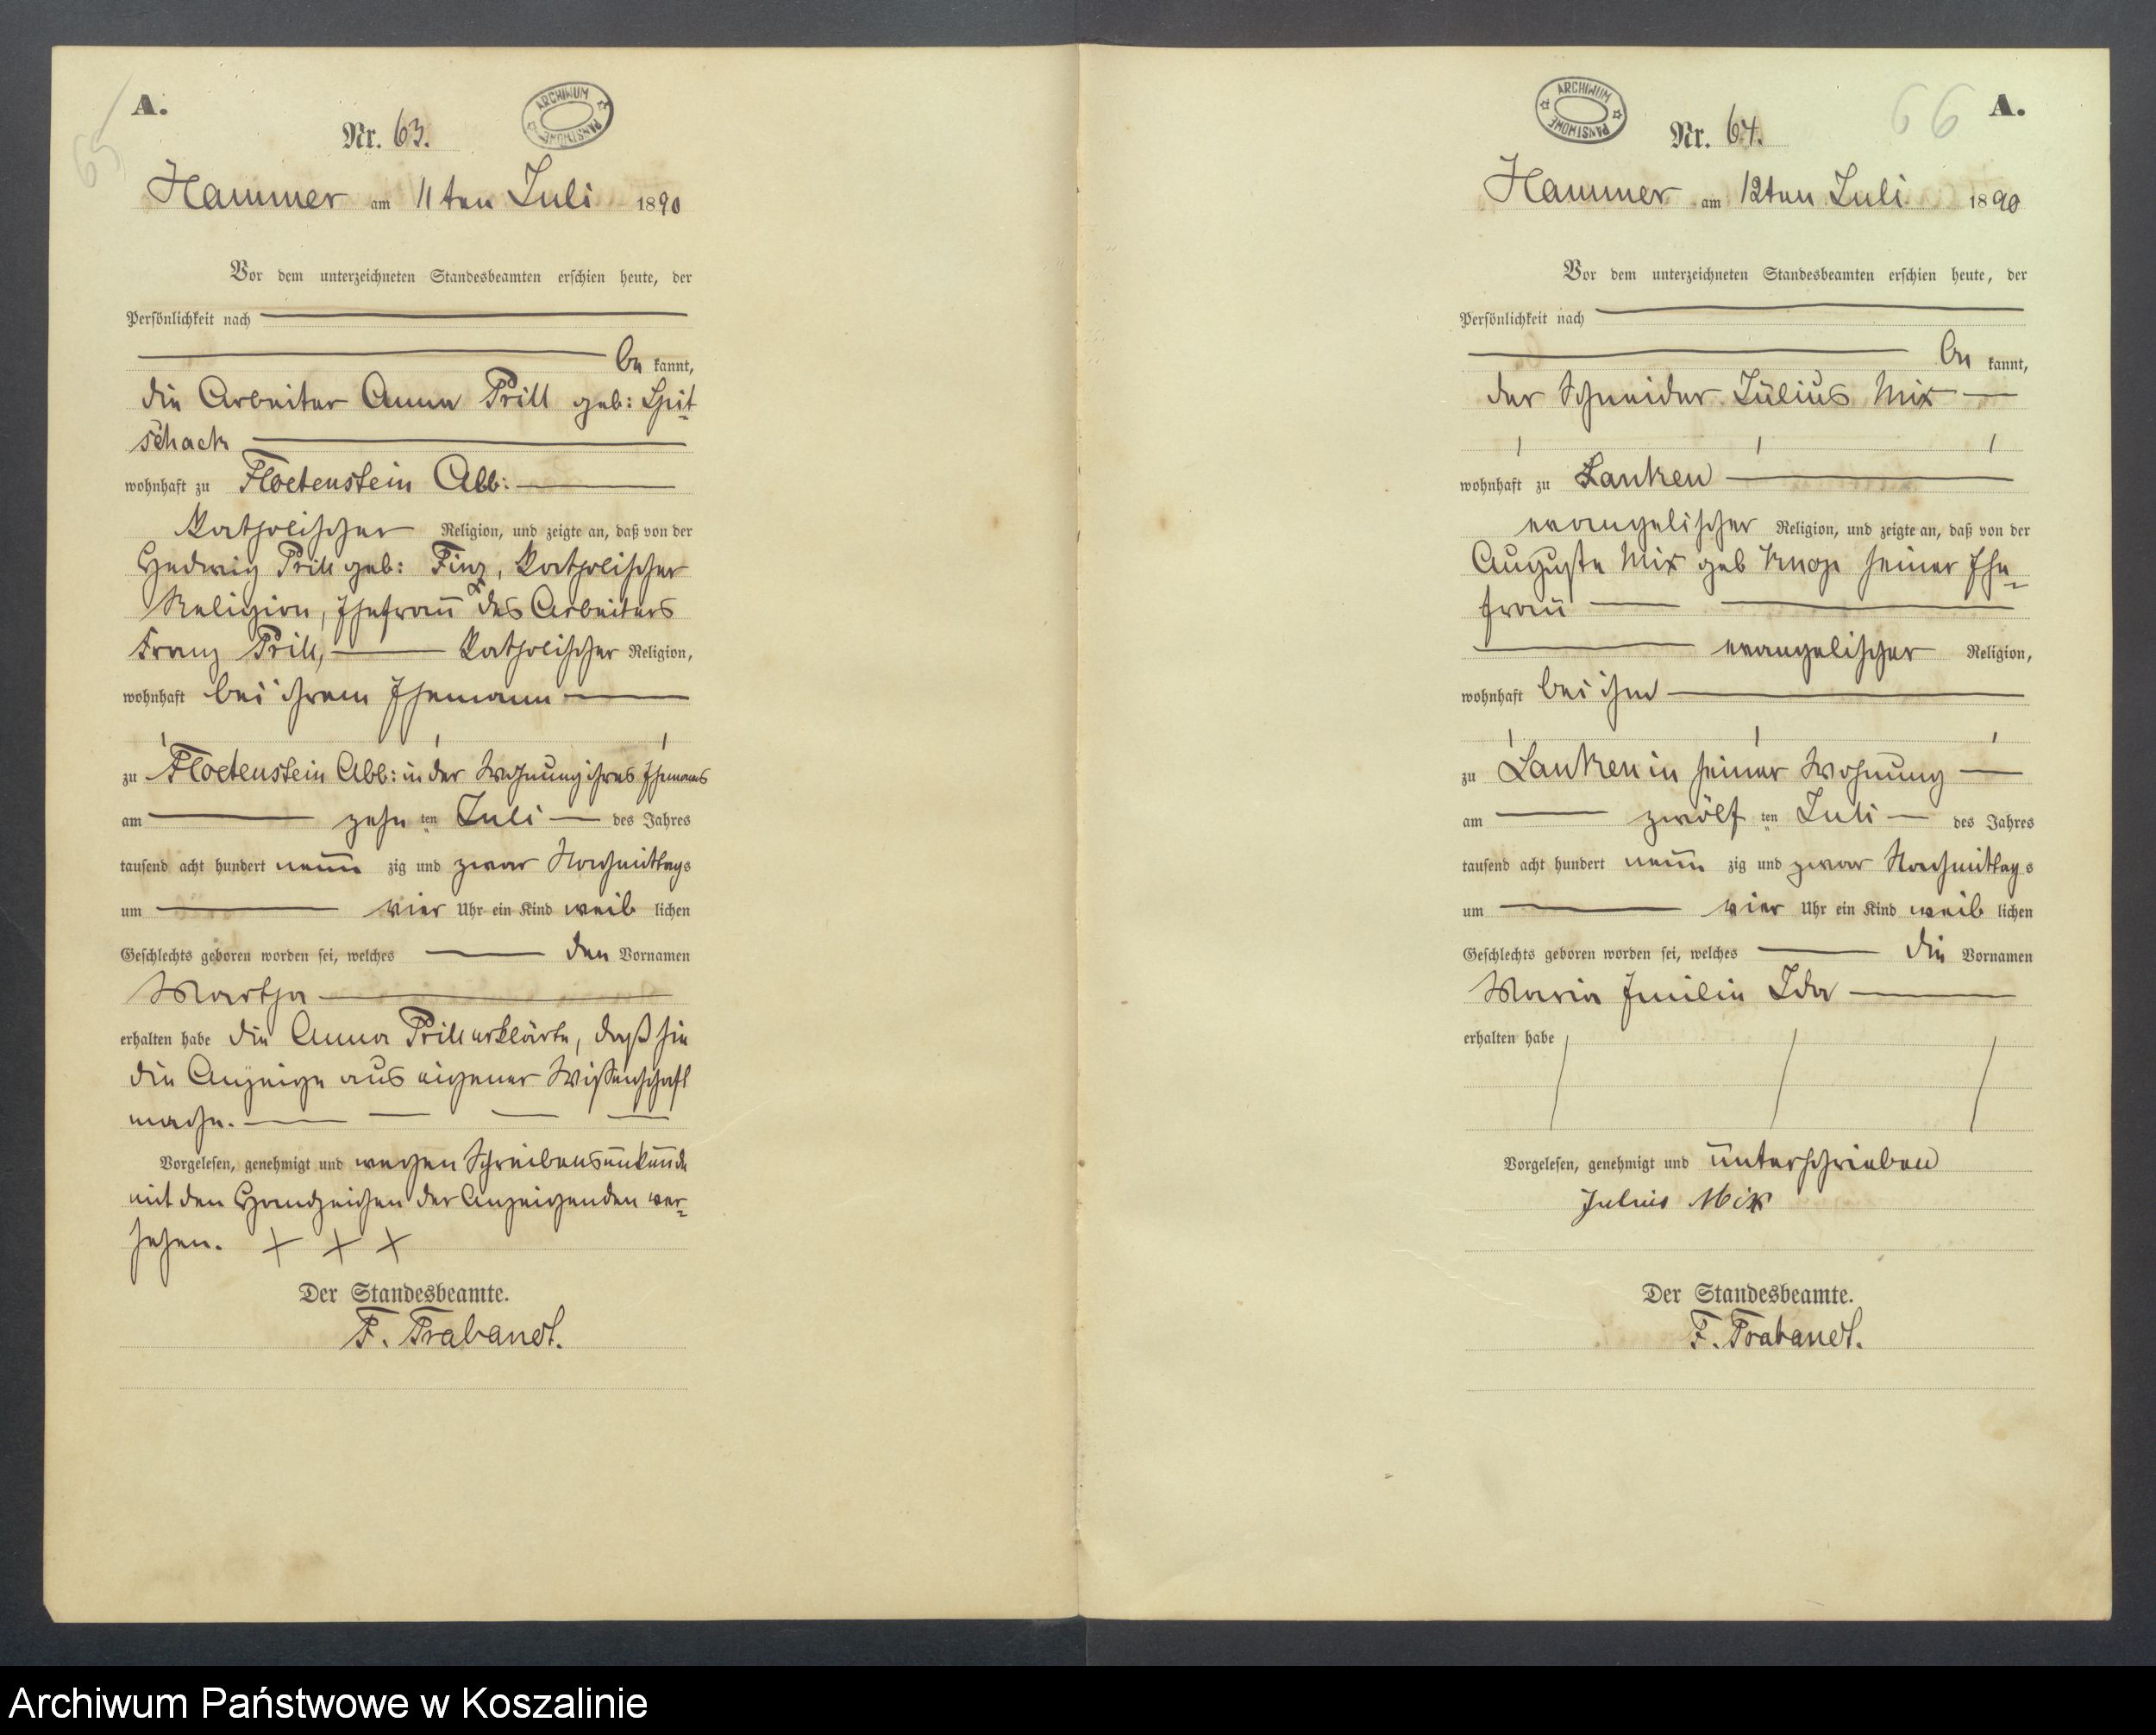 A.
65
Nr. 63.
ARCHIWUM PAŃSTWOWE
Hammer am 11ten Juli 1890
Vor dem unterzeichneten Standesbeamten erschien heute, der
Persönlichkeit nach
be kannt,
die Arbeiter Anna Prill geb: Spit-
schack
wohnhaft zu Floetenstein Abb:
katholischer Religion, und zeigte an, daß von der
Hedwig Prill geb: Finz, katholischer
Religion, Ehefrau des Arbeiters
Franz Prill, katholischer Religion,
wohnhaft bei ihrem Ehemann
zu Floetenstein Abb: in der Wohnung ihres Ehemanns
am zehn ten Juli des Jahres
tausend acht hundert neun zig und zwar Nachmittags
um vier Uhr ein Kind weib lichen
Geschlechts geboren worden sei, welches den Vornamen
Martha
erhalten habe die Anna Prill erklärte, daß sie
die Anzeige aus eigener Wissenschaft
mache.
Vorgelesen, genehmigt und wegen Schreibensunkunde
mit den Handzeichen der Anzeigenden ver-
sehen. + + +
Der Standesbeamte.
F. Trabandt.
ARCHIWUM PAŃSTWOWE
66
A.
Nr. 64.
Hammer am 12ten Juli 1890
Vor dem unterzeichneten Standesbeamten erschien heute, der
Persönlichkeit nach
be kannt,
der Schneider Julius Mix
wohnhaft zu Lanken
evangelischer Religion, und zeigte an, daß von der
Auguste Mix geb Knop seiner Ehe-
frau
evangelischer Religion,
wohnhaft bei ihm
zu Lanken in seiner Wohnung
am zwölf ten Juli des Jahres
tausend acht hundert neun zig und zwar Nachmittag s
um vier Uhr ein Kind weib lichen
Geschlechts geboren worden sei, welches die Vornamen
Maria Emilie Ida
erhalten habe
Vorgelesen, genehmigt und unterschrieben
Julius Mix
Der Standesbeamte.
F. Trabandt.
Archiwum Państwowe w Koszalinie